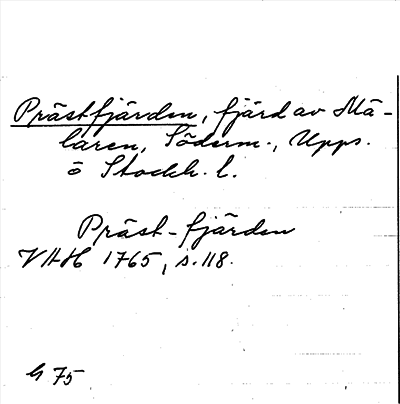 Prästfjärden, fjärd av Mä-
laren, Söderm., Upps.
o Stockh. l.
Präst-fjärden
VAH 1765, s. 118.
G 75